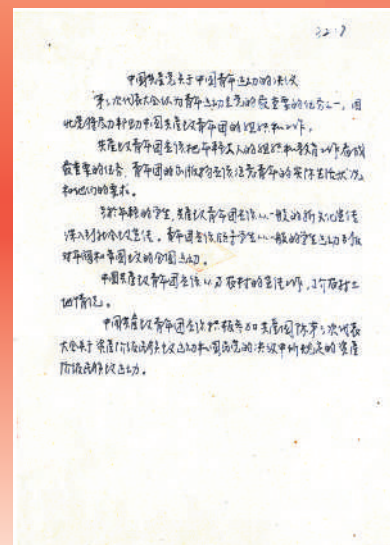 中国共产党关于中国青年运动的决议
第三次代表大会认为青年运动是党的最重要的任务之一，因
此党得尽力帮助中国共产主义青年团的组织和工作。
共产主义青年团应该把年轻工人的组织和教育工作看成
最重要的任务，青年团的出版物应该注意青年的实际生活状况
和他们的要求。
对于年轻的学生，共产主义青年团应从一般的新文化宣传
深入到社会主义宣传。青年团应该给予学生以一般的学生运动
对军阀和帝国主义的全国运动。
中国共产主义青年团应该从事农村的宣传工作，了解农村土
地情况。
中国共产主义青年团应该积极参加共产国际第三次代表
大会关于资产阶级民族主义运动和国民党的决议中所规定的资产
阶级民族主义运动。